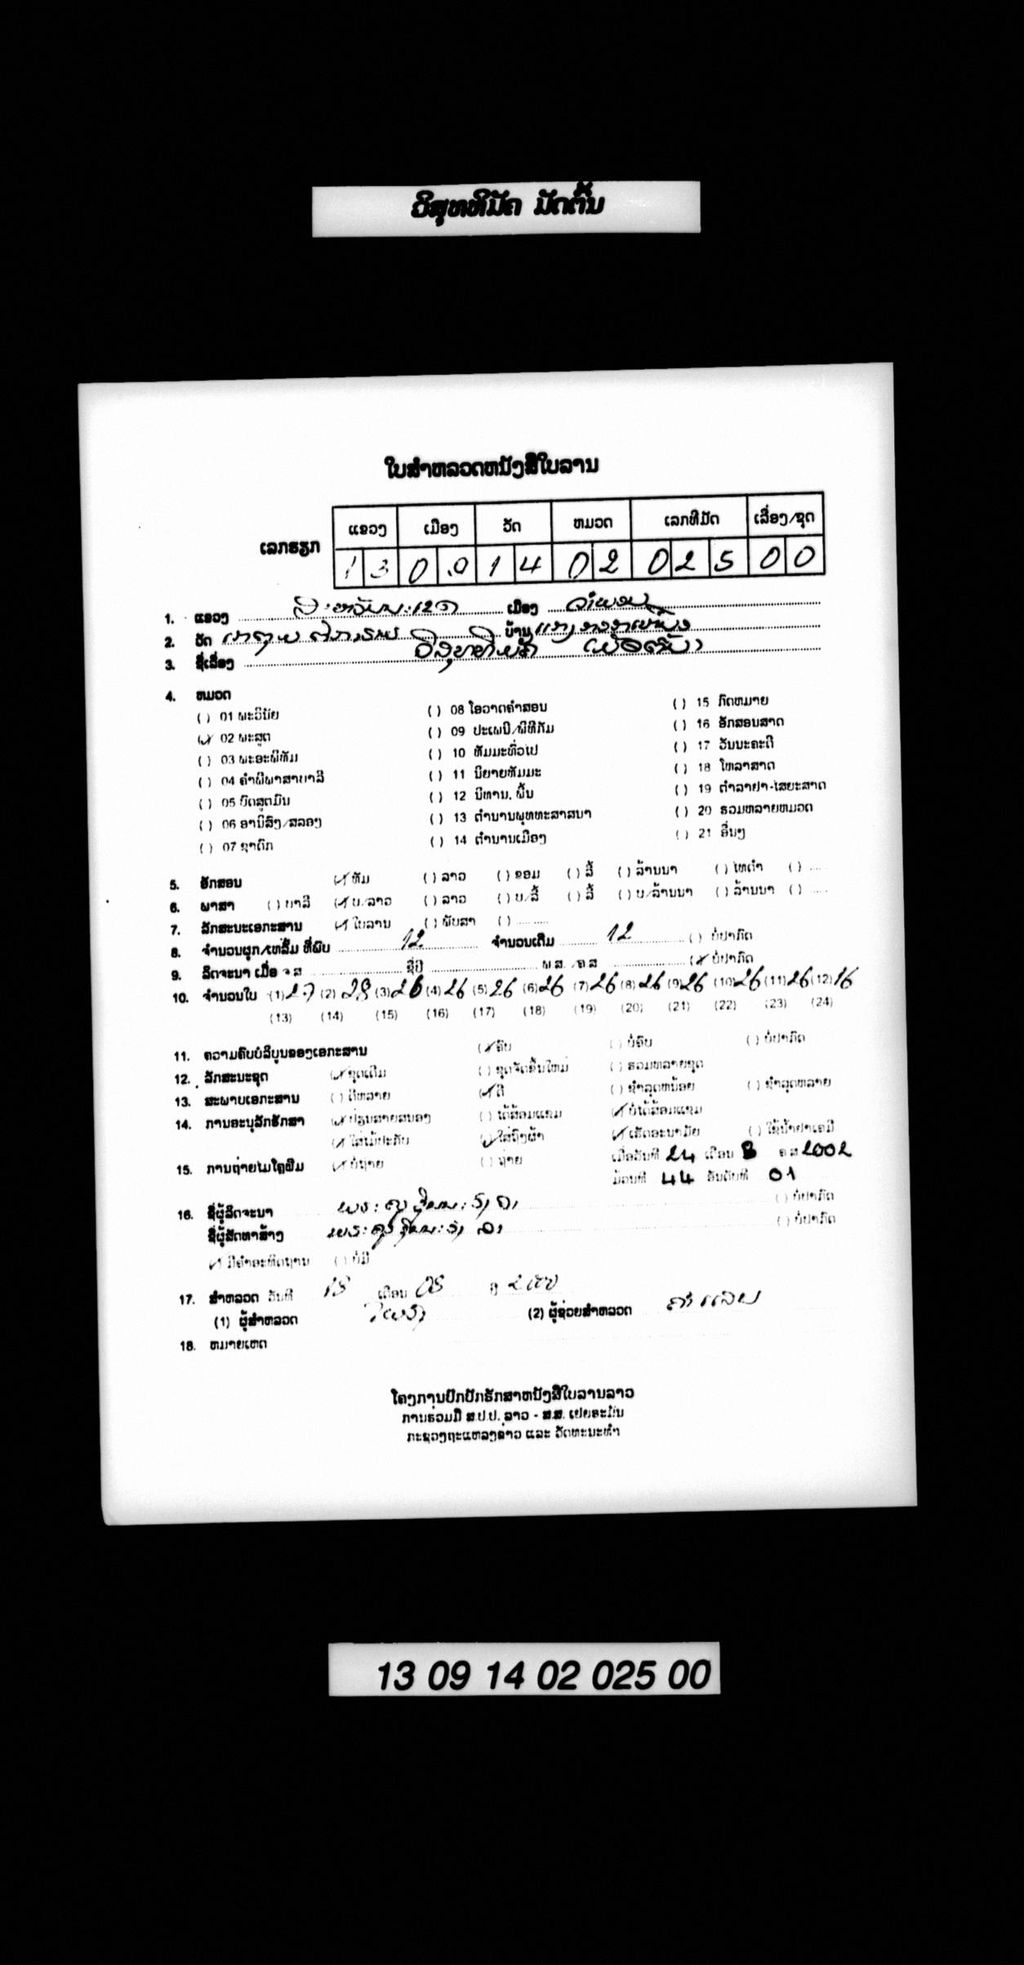 ວິສຸທທິມັຄ ມັດຕົ້ນ
ໃບສຳຫລວດຫນັງສືໃບລານ
ເລກຮຽກ
ແຂວງ ເມືອງ ວັດ ຫມວດ ເລກທີມັດ ເລື່ອງ/ຊຸດ
1 3 0 9 1 4 0 2 0 2 5 0 0
1. ແຂວງ ເມືອງ
2. ວັດ ບ້ານ
3. ຊື່ເລື່ອງ ວິສຸທທິມັກ (ມັດຕົ້ນ)
4. ຫມວດ
( ) 01 ພະວິນັຍ ( ) 08 ໂອວາດຄຳສອນ ( ) 15 ກົດຫມາຍ
(✓) 02 ພະສູດ ( ) 09 ປະເພນີ/ພິທີກັມ ( ) 16 ອັກສອນສາດ
( ) 03 ພະອະພິທັມ ( ) 10 ທັມມະທົ່ວໄປ ( ) 17 ວັນນະຄະດີ
( ) 04 ຄຳພີພາສາບາລີ ( ) 11 ນິຍາຍທັມມະ ( ) 18 ໂຫລາສາດ
( ) 05 ບົດສູດມົນ ( ) 12 ນິທານ, ພື້ນ ( ) 19 ຕຳລາຢາ-ໄສຍະສາດ
( ) 06 ອານິສົງ/ສລອງ ( ) 13 ຕຳນານພຸທທະສາສນາ ( ) 20 ຮວມຫລາຍຫມວດ
( ) 07 ຊາດົກ ( ) 14 ຕຳນານເມືອງ ( ) 21 ອື່ນໆ
5. ອັກສອນ (✓) ທັມ ( ) ລາວ ( ) ຂອມ ( ) ລື້ ( ) ລ້ານນາ ( ) ໄທດຳ ( ) .....
6. ພາສາ ( ) ບາລີ (✓) ບ/ລາວ ( ) ລາວ ( ) ບ/ລື້ ( ) ລື້ ( ) ບ/ລ້ານນາ ( ) ລ້ານນາ ( ) .....
7. ລັກສະນະເອກະສານ (✓) ໃບລານ ( ) ພັບສາ ( ) .........
8. ຈຳນວນຜູກ/ເຫລັ້ມ ທີ່ພົບ 12 ຈຳນວນເດີມ 12 ( ) ບໍ່ປາກົດ
9. ລິດຈະນາ ເມື່ອ ຈ.ສ ຊື່ປີ ພ.ສ./ຄ.ສ (✓) ບໍ່ປາກົດ
10. ຈຳນວນໃບ (1) 27 (2) 28 (3) 26 (4) 26 (5) 26 (6) 26 (7) 26 (8) 26 (9) 26 (10) 26 (11) 26 (12) 16
(13) (14) (15) (16) (17) (18) (19) (20) (21) (22) (23) (24)
11. ຄວາມຄົບບໍລິບູນຂອງເອກະສານ (✓) ຄົບ ( ) ບໍ່ຄົບ ( ) ບໍ່ປາກົດ
12. ລັກສະນະຊຸດ (✓) ຊຸດເດີມ ( ) ຊຸດຈັດຂຶ້ນໃຫມ່ ( ) ຮວມຫລາຍຊຸດ
13. ສະພາບເອກະສານ ( ) ດີຫລາຍ (✓) ດີ ( ) ຊຳລຸດຫນ້ອຍ ( ) ຊຳລຸດຫລາຍ
14. ການອະນຸລັກຮັກສາ (✓) ປ່ຽນສາຍສນອງ ( ) ໄດ້ສ້ອມແຊມ (✓) ບໍ່ໄດ້ສ້ອມແຊມ
(✓) ໃສ່ໄມ້ປະກັບ (✓) ໃສ່ຖົງຜ້າ (✓) ເຮັດອະນາມັຍ ( ) ໃຊ້ນ້ຳຢາເຄມີ
15. ການຖ່າຍໄມໂຄຼຟີມ (✓) ບໍ່ຖ່າຍ ( ) ຖ່າຍ ເມື່ອວັນທີ 24 ເດືອນ 8 ຄ.ສ 2002
ມ້ວນທີ 44 ອັນດັບທີ 01
16. ຊື່ຜູ້ລິດຈະນາ ( ) ບໍ່ປາກົດ
ຊື່ຜູ້ສັດທາສ້າງ ( ) ບໍ່ປາກົດ
(✓) ມີຄຳອະທິດຖານ ( ) ບໍ່ມີ
17. ສຳຫລວດ ວັນທີ 18 ເດືອນ 08 ປີ
(1) ຜູ້ສຳຫລວດ (2) ຜູ້ຊ່ວຍສຳຫລວດ
18. ຫມາຍເຫດ
ໂຄງການປົກປັກຮັກສາຫນັງສືໃບລານລາວ
ການຮ່ວມມື ສ.ປ.ປ. ລາວ - ສ.ສ. ເຢຍຣະມັນ
ກະຊວງຖະແຫລງຂ່າວ ແລະ ວັດທະນະທຳ
13 09 14 02 025 00